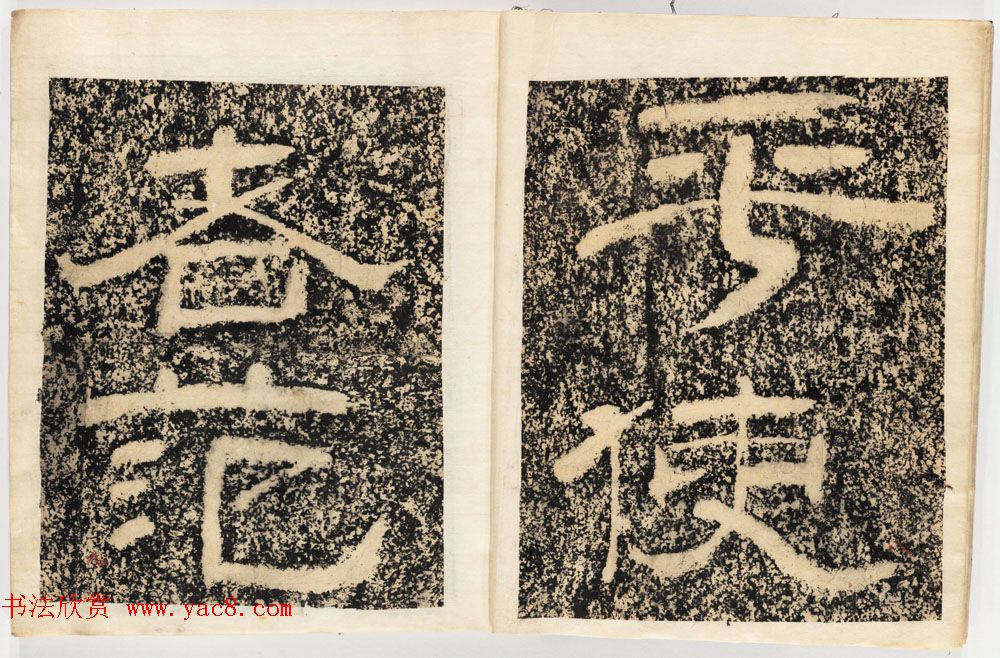 乎使
者范
书法欣赏 www.yac8.com